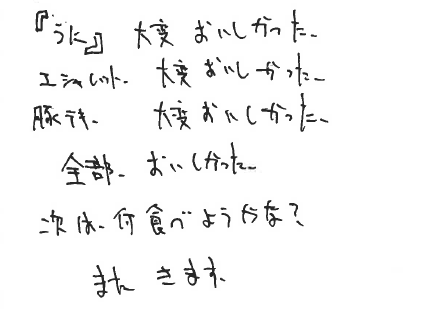 『うに』 大変 おいしかった。
エシャレット。 大変 おいしかった。
豚テキ。 大変 おいしかった。
全部。 おいしかった。
次は、何食べようかな？
また きます。